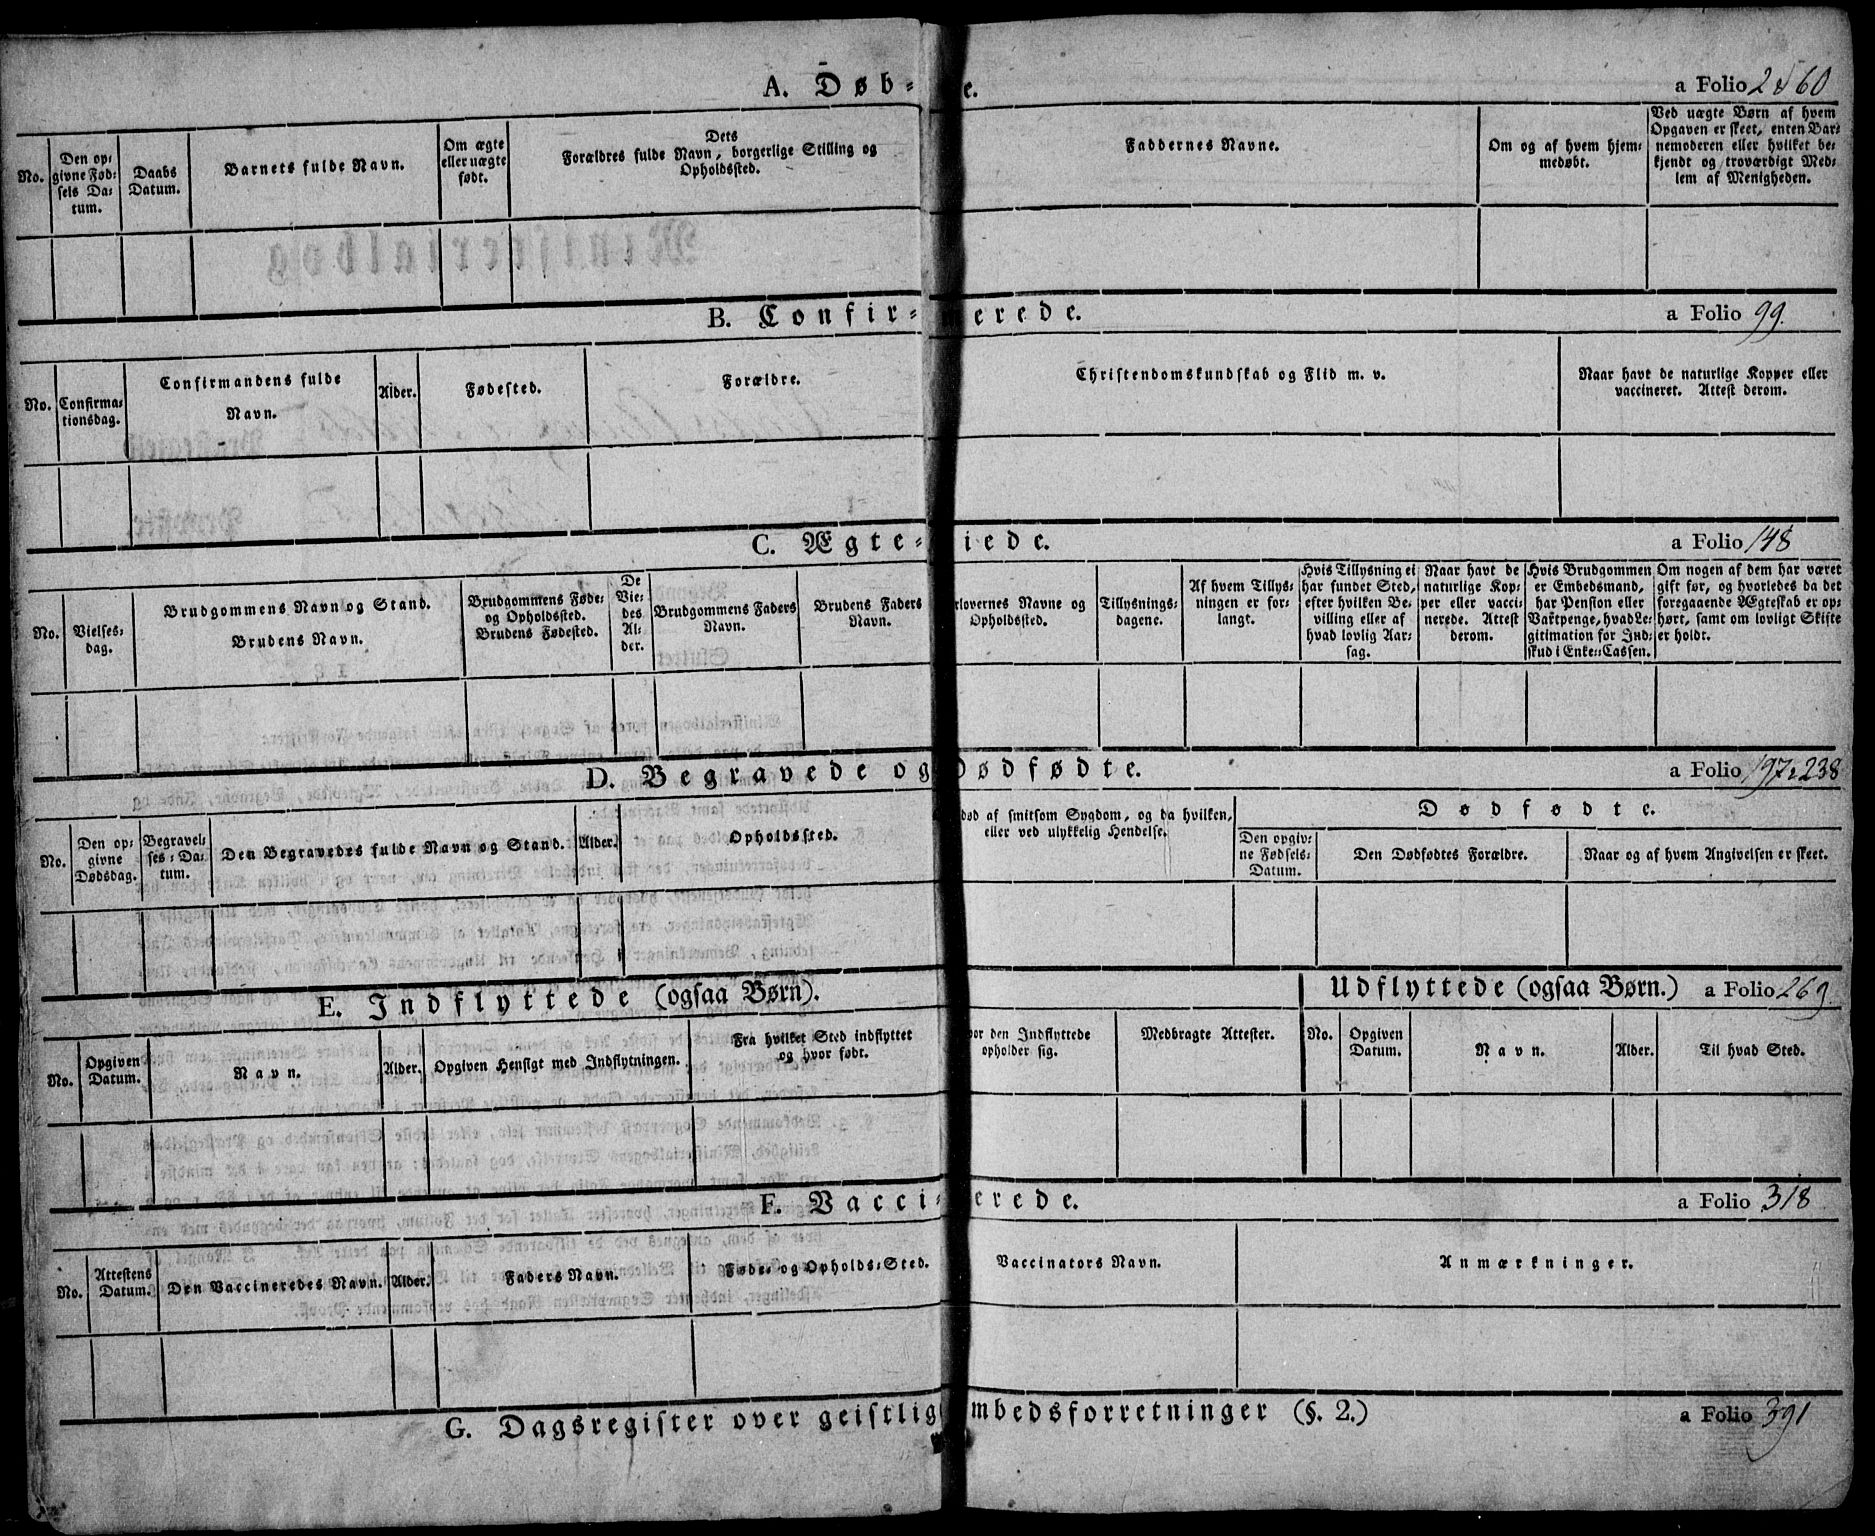 A. Døb- e. a Folio 2 & 60
No.
Den op-
givne Fød-
sels Da-
tum.
Daabs
Datum.
Barnets fulde Navn.
Om ægte
eller uægte
født.
Dets
Forældres fulde Navn, borgerlige Stilling og
Opholdssted.
Faddernes Navne.
Om og af hvem hjem-
medøbt.
Ved uægte Børn af hvem
Opgaven er skeet, enten Bar-
nemoderen eller hvilket be-
kjendt og troværdigt Med-
lem af Menigheden.
Ministerialbog
B. Confir- erede. a Folio 99.
No.
Confirma-
tionsdag.
Confirmandens fulde
Navn.
Alder.
Fødested.
Forældre.
Christendomskundskab og Flid m. v.
Naar havt de naturlige Kopper eller
vaccineret. Attest derom.
C. Ægte- iede. a Folio 148
No.
Vielses-
dag.
Brudgommens Navn og Stand.
Brudens Navn.
Brudgommens Føde-
og Opholdssted.
Brudens Fødested.
De
Vie-
des
Al-
der.
Brudgommens Faders
Navn.
Brudens Faders
Navn.
rlovernes Navne og
Opholdssted.
Tillysnings-
dagene.
Af hvem Tillys-
ningen er for-
langt.
Hvis Tillysning ei
har fundet Sted,
efter hvilken Be-
villing eller af
hvad lovlig Aar-
sag.
Naar havt de
naturlige Kop-
per eller vacci-
nerede. Attest
derom.
Hvis Brudgommen
er Embedsmand,
har Pension eller
Vaktpenge, hvad Le-
gitimation for Ind-
skud i Enke-Cassen.
Om nogen af dem har været
gift før, og hvorledes da det
foregaaende Ægteskab er op-
hørt, samt om lovligt Skifte
er holdt.
D. Begravede og Dødfødte. a Folio 197 & 238
No.
Den op-
givne
Dødsdag.
Begravel-
ses-Da-
tum.
Den Begravedes fulde Navn og Stand.
Alder.
Opholdssted.
død af smitsom Sygdom, og da hvilken,
eller ved ulykkelig Hendelse.
Dødfødte.
Den opgiv-
ne Fødsels-
Datum.
Den Dødfødtes Forældre.
Naar og af hvem Angivelsen er skeet.
E. Indflyttede (ogsaa Børn). Udflyttede (ogsaa Børn.) a Folio 269
No.
Opgiven
Datum.
Navn.
Alder.
Opgiven Hensigt med Indflytningen.
Fra hvilket Sted indflyttet
og hvor født.
vor den Indflyttede
opholder sig.
Medbragte Attester.
No.
Opgiven
Datum.
Navn.
Alder.
Til hvad Sted.
F. Vacci- erede. a Folio 318
No.
Attestens
Datum.
Den Vaccineredes Navn.
Alder.
Faders Navn.
Føde- og Opholds-Sted.
Vaccinators Navn.
Anmærkninger.
G. Dagsregister over geistlig mbedsforretninger (§. 2.) a Folio 391